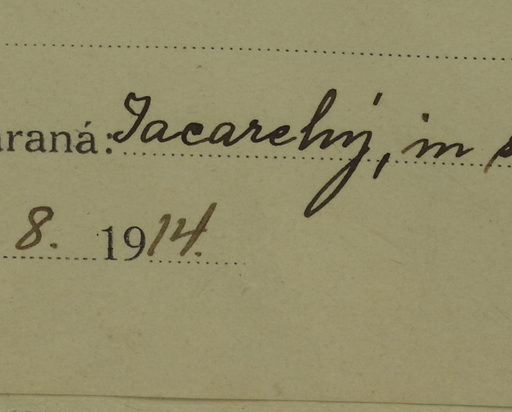 araná: Jacarehý, in
8. 1914.